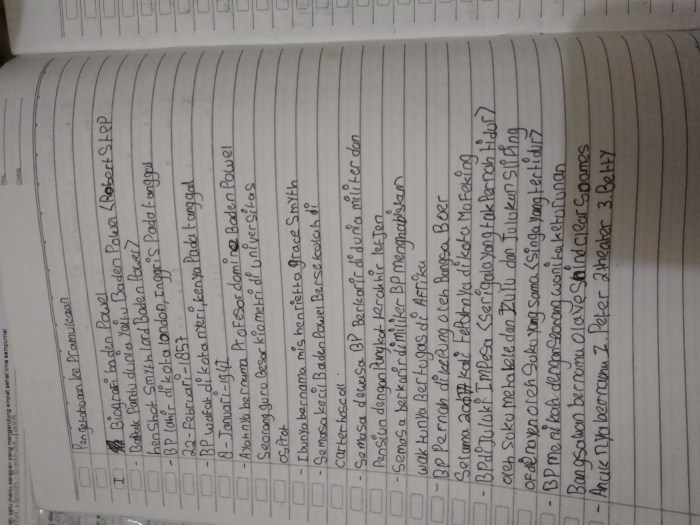 Pengetahuan ke Pramukaan
I Biografi baden Powel
- Bapak Pandu dunia yaitu Baden Powel (Robert STEP
henShot Smyth lord Baden Powel)
- BP lahir di kota London, Inggris Pada tanggal
22-Februari-1857
- BP wafat di kota nyeri, kenya Pada tanggal
8-Januari-1941
- Ayahnya bernama Profesor domine Baden Powel
Seorang guru besar kiometri di universitas
osfrot
- Ibunya bernama mis henrietta grace Smyth
- Semasa kecil Baden Powel Bersekolah di
carterhoscoll
- Semasa dewasa BP Berkarir di dunia militer dan
Pensiun dengan Pangkat terakhir letjen
- Semasa berkarir di militer BP menghabiskan
waktunya Bertugas di Afrika
- BP Pernah di kepung oleh Bangsa Boer
Selama 207 hari Tepatnya di kota Mafeking
- BP di Juluki Impesa (Serigala yang tak Pernah tidur)
oleh suku metabele dan Zulu dan Julukan Sliping
oleh suku yang sama (Singa yang tertidur)
- BP menikah dengan seorang wanita keturunan
Bangsawan bernama olave St clear Soames
- Anak nya bernama 1. Peter 2 theater 3. Betty